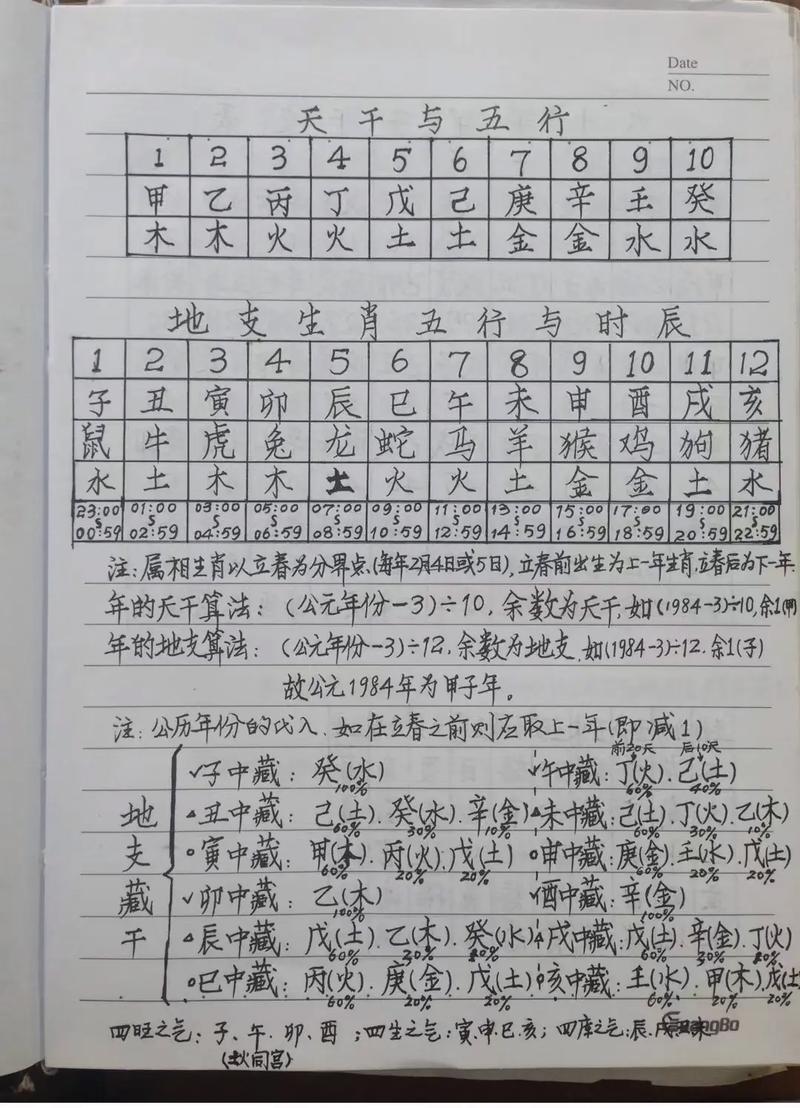 Date
NO.
天干与五行
1 2 3 4 5 6 7 8 9 10
甲 乙 丙 丁 戊 己 庚 辛 壬 癸
木 木 火 火 土 土 金 金 水 水
地支生肖五行与时辰
1 2 3 4 5 6 7 8 9 10 11 12
子 丑 寅 卯 辰 巳 午 未 申 酉 戌 亥
鼠 牛 虎 兔 龙 蛇 马 羊 猴 鸡 狗 猪
水 土 木 木 土 火 火 土 金 金 土 水
23:00 01:00 03:00 05:00 07:00 09:00 11:00 13:00 15:00 17:00 19:00 21:00
00:59 02:59 04:59 06:59 08:59 10:59 12:59 14:59 16:59 18:59 20:59 22:59
注:属相生肖以立春为分界点,(每年2月4日或5日),立春前出生为上一年生肖,立春后为下一年.
年的天干算法:(公元年份-3)÷10,余数为天干,如(1984-3)÷10,余1(甲)
年的地支算法:(公元年份-3)÷12,余数为地支,如(1984-3)÷12.余1(子)
故公元1984年为甲子年。
注:公历年份的代入、如在立春之前则应取上一年(即减1)
前20天 后10天
子中藏:癸(水) 午中藏:丁(火).己(土)
100% 60% 40%
丑中藏:己(土).癸(水).辛(金) 未中藏:己(土).丁(火).乙(木)
60% 30% 10% 60% 30% 10%
寅中藏:甲(木).丙(火).戊(土) 申中藏:庚(金).壬(水).戊(土)
60% 20% 20% 60% 20% 20%
卯中藏:乙(木) 酉中藏:辛(金)
100% 100%
辰中藏:戊(土).乙(木).癸(水) 戌中藏:戊(土).辛(金).丁(火)
60% 30% 60% 30%
巳中藏:丙(火).庚(金).戊(土) 亥中藏:壬(水).甲(木).戊(土)
60% 20% 20% 60% 20% 20%
地支藏干
四旺之气:子、午、卯、酉;四生之气:寅.申.巳.亥;四库之气:辰.戌